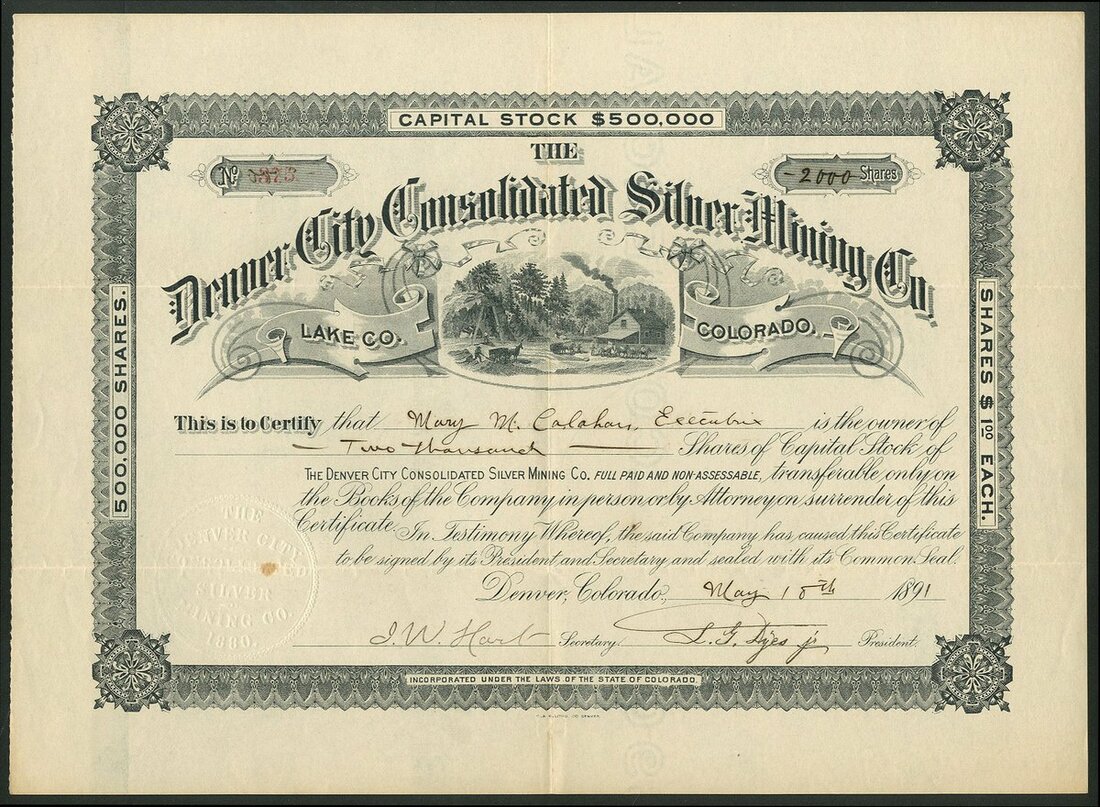 CAPITAL STOCK $500,000
THE
No 
-2000- Shares
Denver City Consolidated Silver Mining Co.
LAKE CO.
COLORADO.
500,000 SHARES.
SHARES $1.00 EACH.
This is to Certify that Mary M. Calahan, Executrix is the owner of
— Two thousand — Shares of Capital Stock of
THE DENVER CITY CONSOLIDATED SILVER MINING CO. FULL PAID AND NON-ASSESSABLE, transferable only on
the Books of the Company in person or by Attorney on surrender of this
Certificate. In Testimony Whereof, the said Company has caused this Certificate
to be signed by its President and Secretary and sealed with its Common Seal.
Denver, Colorado, May 18th 1891
I. W. Hart Secretary. President.
THE
DENVER CITY
CONSOLIDATED
SILVER
MINING CO.
1880.
INCORPORATED UNDER THE LAWS OF THE STATE OF COLORADO.